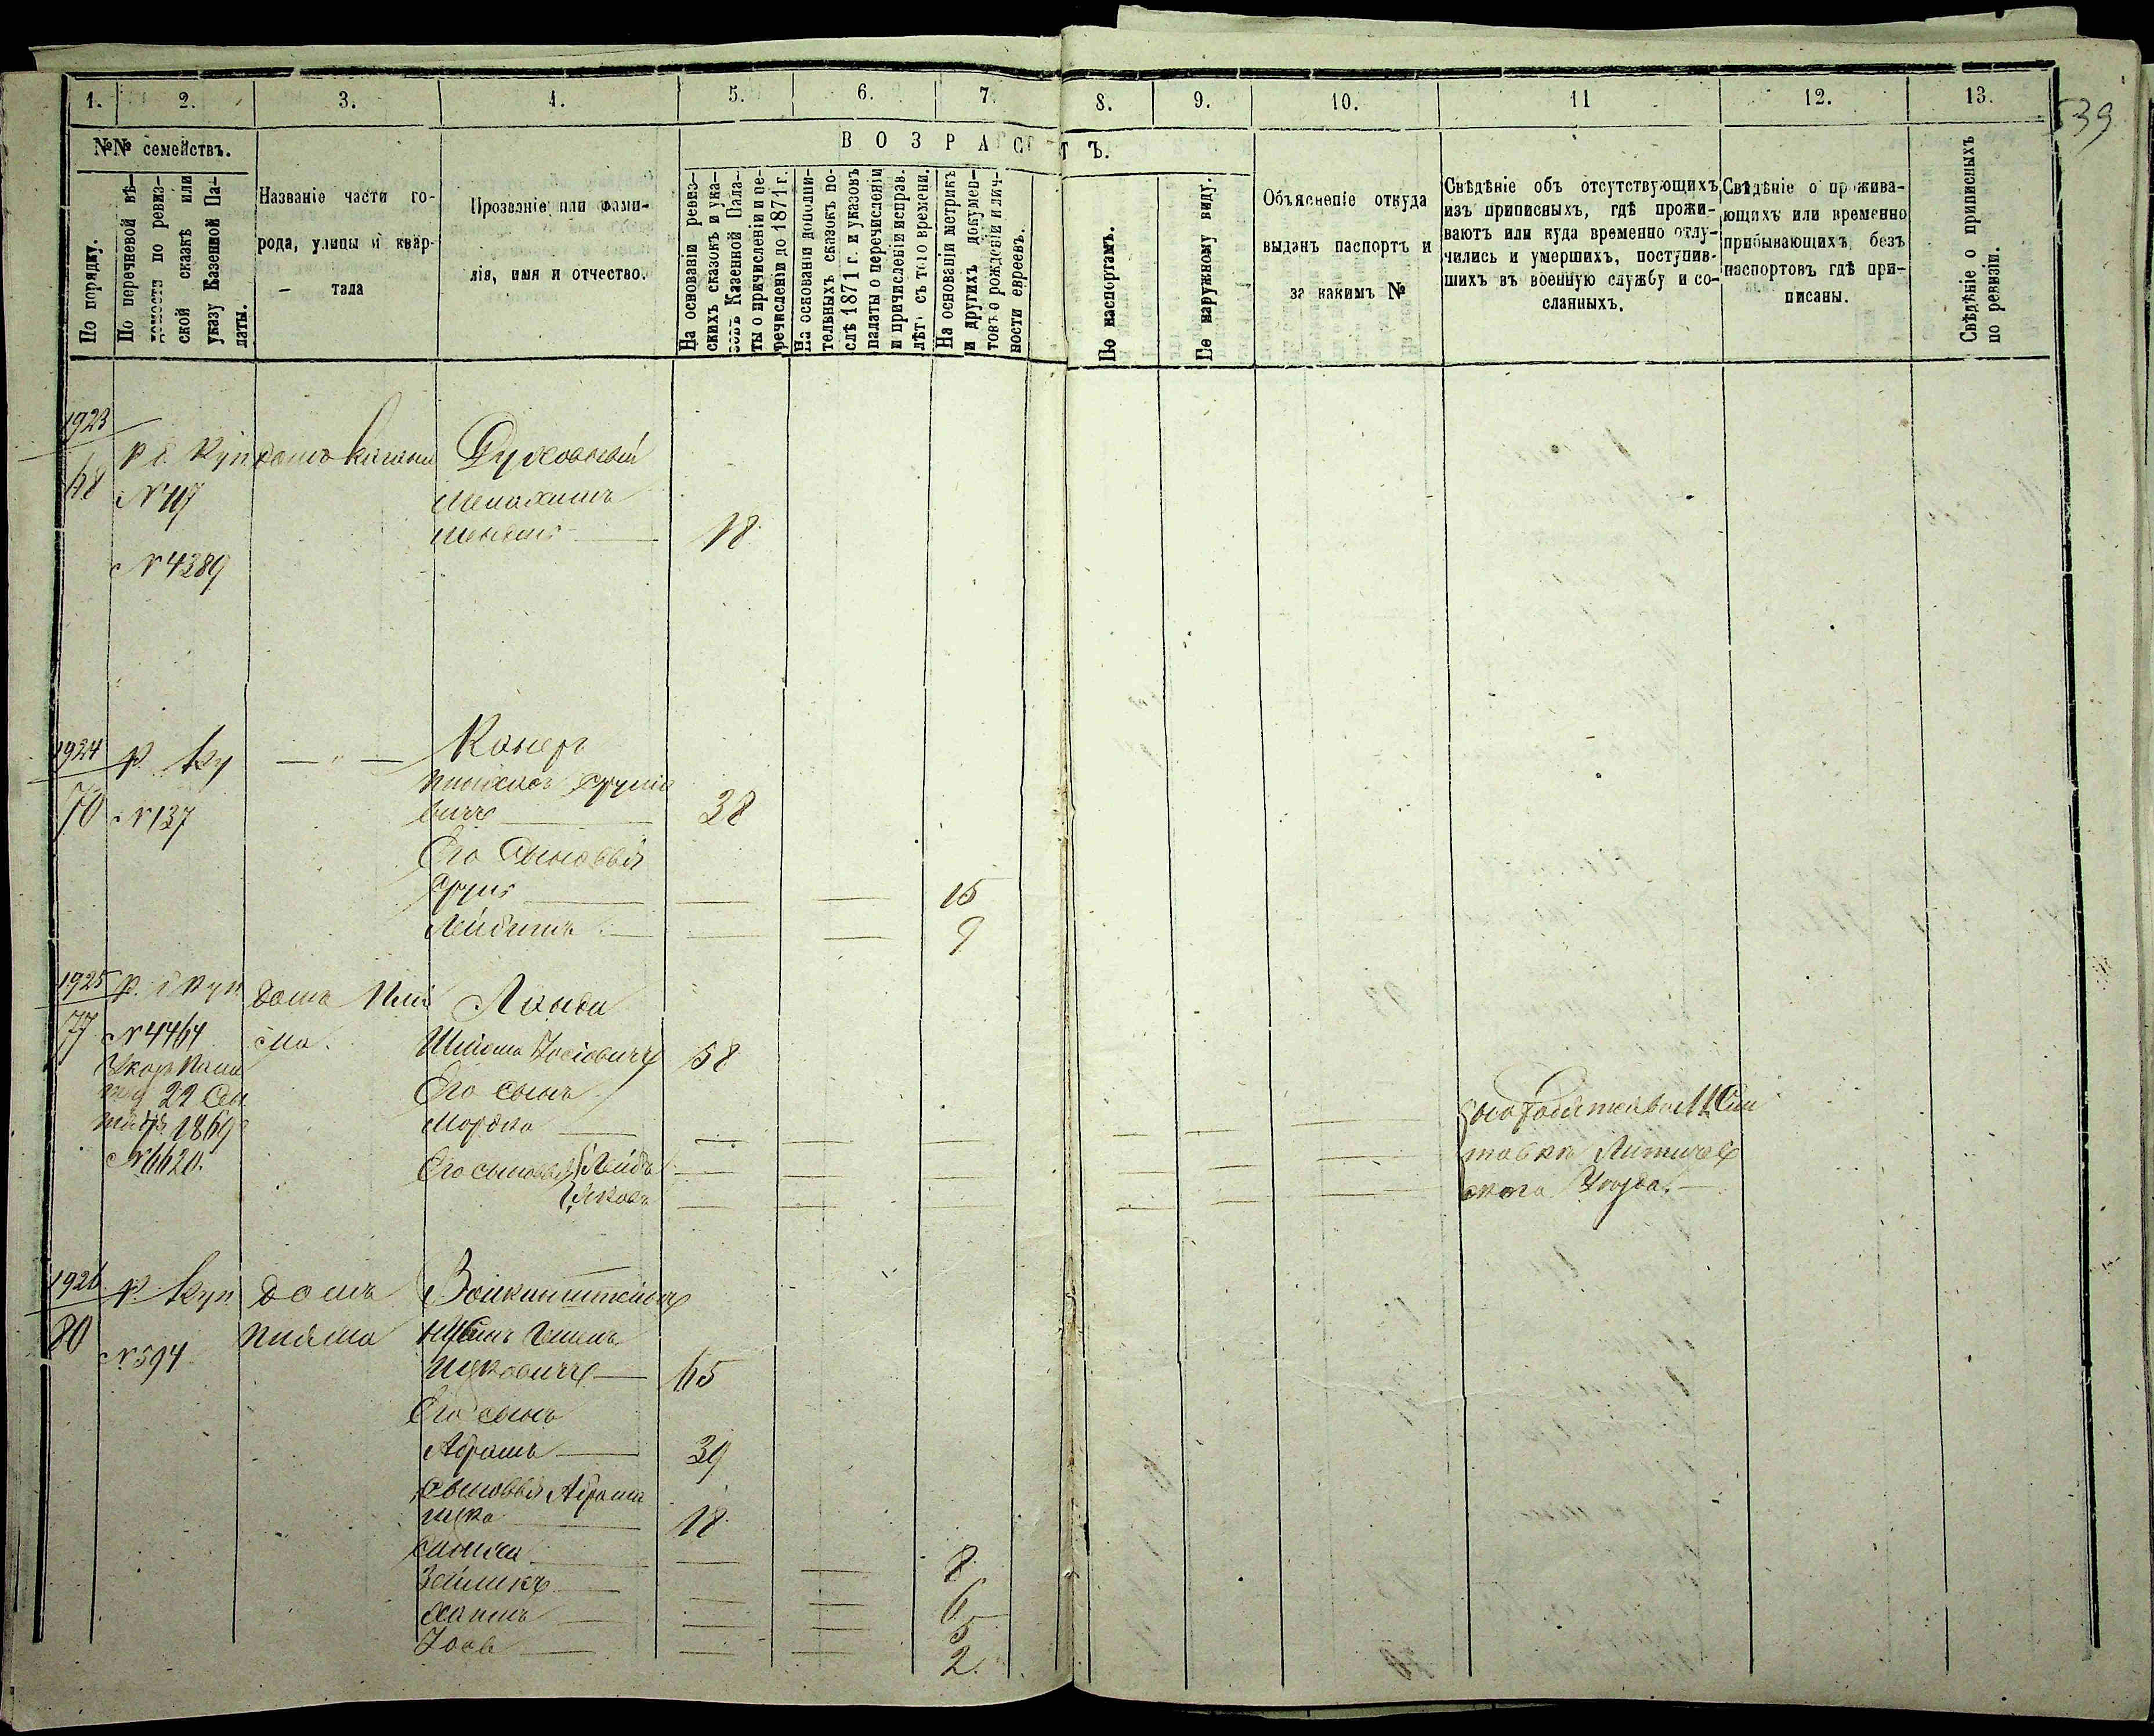 1. 2. 3. 4. 5. 6. 7. 8. 9. 10. 11 12. 13.
539
№№ семействъ.
По порядку.
По перечневой вѣ-
домости по ревиз-
ской сказкѣ или
указу Казенной Па-
латы.
Названіе части го-
рода, улицы и квар-
тала
Прозваніе или фами-
лія, имя и отчество.
ВОЗРАСТЪ.
На основаніи ревиз-
скихъ сказокъ и ука-
зовъ Казенной Пала-
ты о причисленіи и пе-
речисленіи до 1871 г.
На основаніи дополни-
тельныхъ сказокъ по-
слѣ 1871 г. и указовъ
палаты о перечисленіи
и причисленіи исправ.
лѣтъ съ того времени.
На основаніи метрикъ
и другихъ докумен-
товъ о рожденіи и лич-
ности евреевъ.
По паспортамъ.
По наружному виду.
Объясненіе откуда
выданъ паспортъ и
за какимъ №
Свѣдѣніе объ отсутствующихъ
изъ приписныхъ, гдѣ прожи-
ваютъ или куда временно отлу-
чились и умершихъ, поступив-
шихъ въ военную службу и со-
сланныхъ.
Свѣдѣніе о прожива-
ющихъ или временно
прибывающихъ безъ
паспортовъ гдѣ при-
писаны.
Свѣдѣніе о приписныхъ
по ревизіи.
1923
68
Куп домъ
№ 117
№ 4289
Духовный
Менахимъ
Мендель 18
1924
70
Р. Ку — " —
№ 137
Канеръ
Пинхасъ Сруліо
вичъ 38
Его сыновья
Сруль — — 15
Лейбишъ — — 9
1925
77
Куп. домъ
№ 4464
22 Сен
1869
№ 6620.
Ланда
Шлиома Іосіовичъ 58
Его сынъ
Мордко — — —
Его сыновья Лейба
Яковъ
Литичев
скаго Уѣзда.
1926
80
Р. Куп. домъ
№ 594
Вайнкинштейнъ
Ицковичъ 65
Его сынъ
Абрамъ 39
сыновья Абрама
Ицко 18
— — 8
Зейликъ — — 6
Хаимъ — — 5
Іось — — 2.